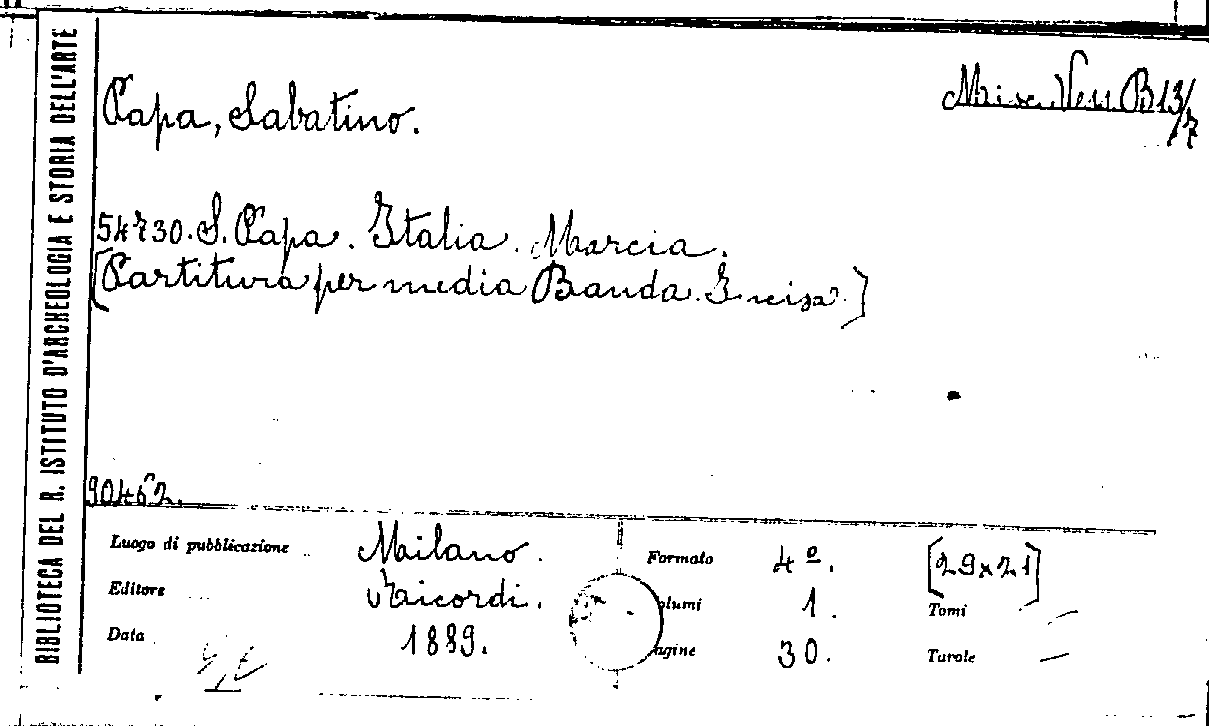 BIBLIOTECA DEL R. ISTITUTO D'ARCHEOLOGIA E STORIA DELL'ARTE
Papa, Sabatino.
Misc. Vess. B 13/7
54730. S. Papa. Italia. Marcia.
[Partitura per media Banda. Incisa.]
90462.
Luogo di pubblicazione Milano.
Editore Ricordi.
Data 1889.
Formato 4º. [29x21]
olumi 1. Tomi —
agine 30. Tavole —